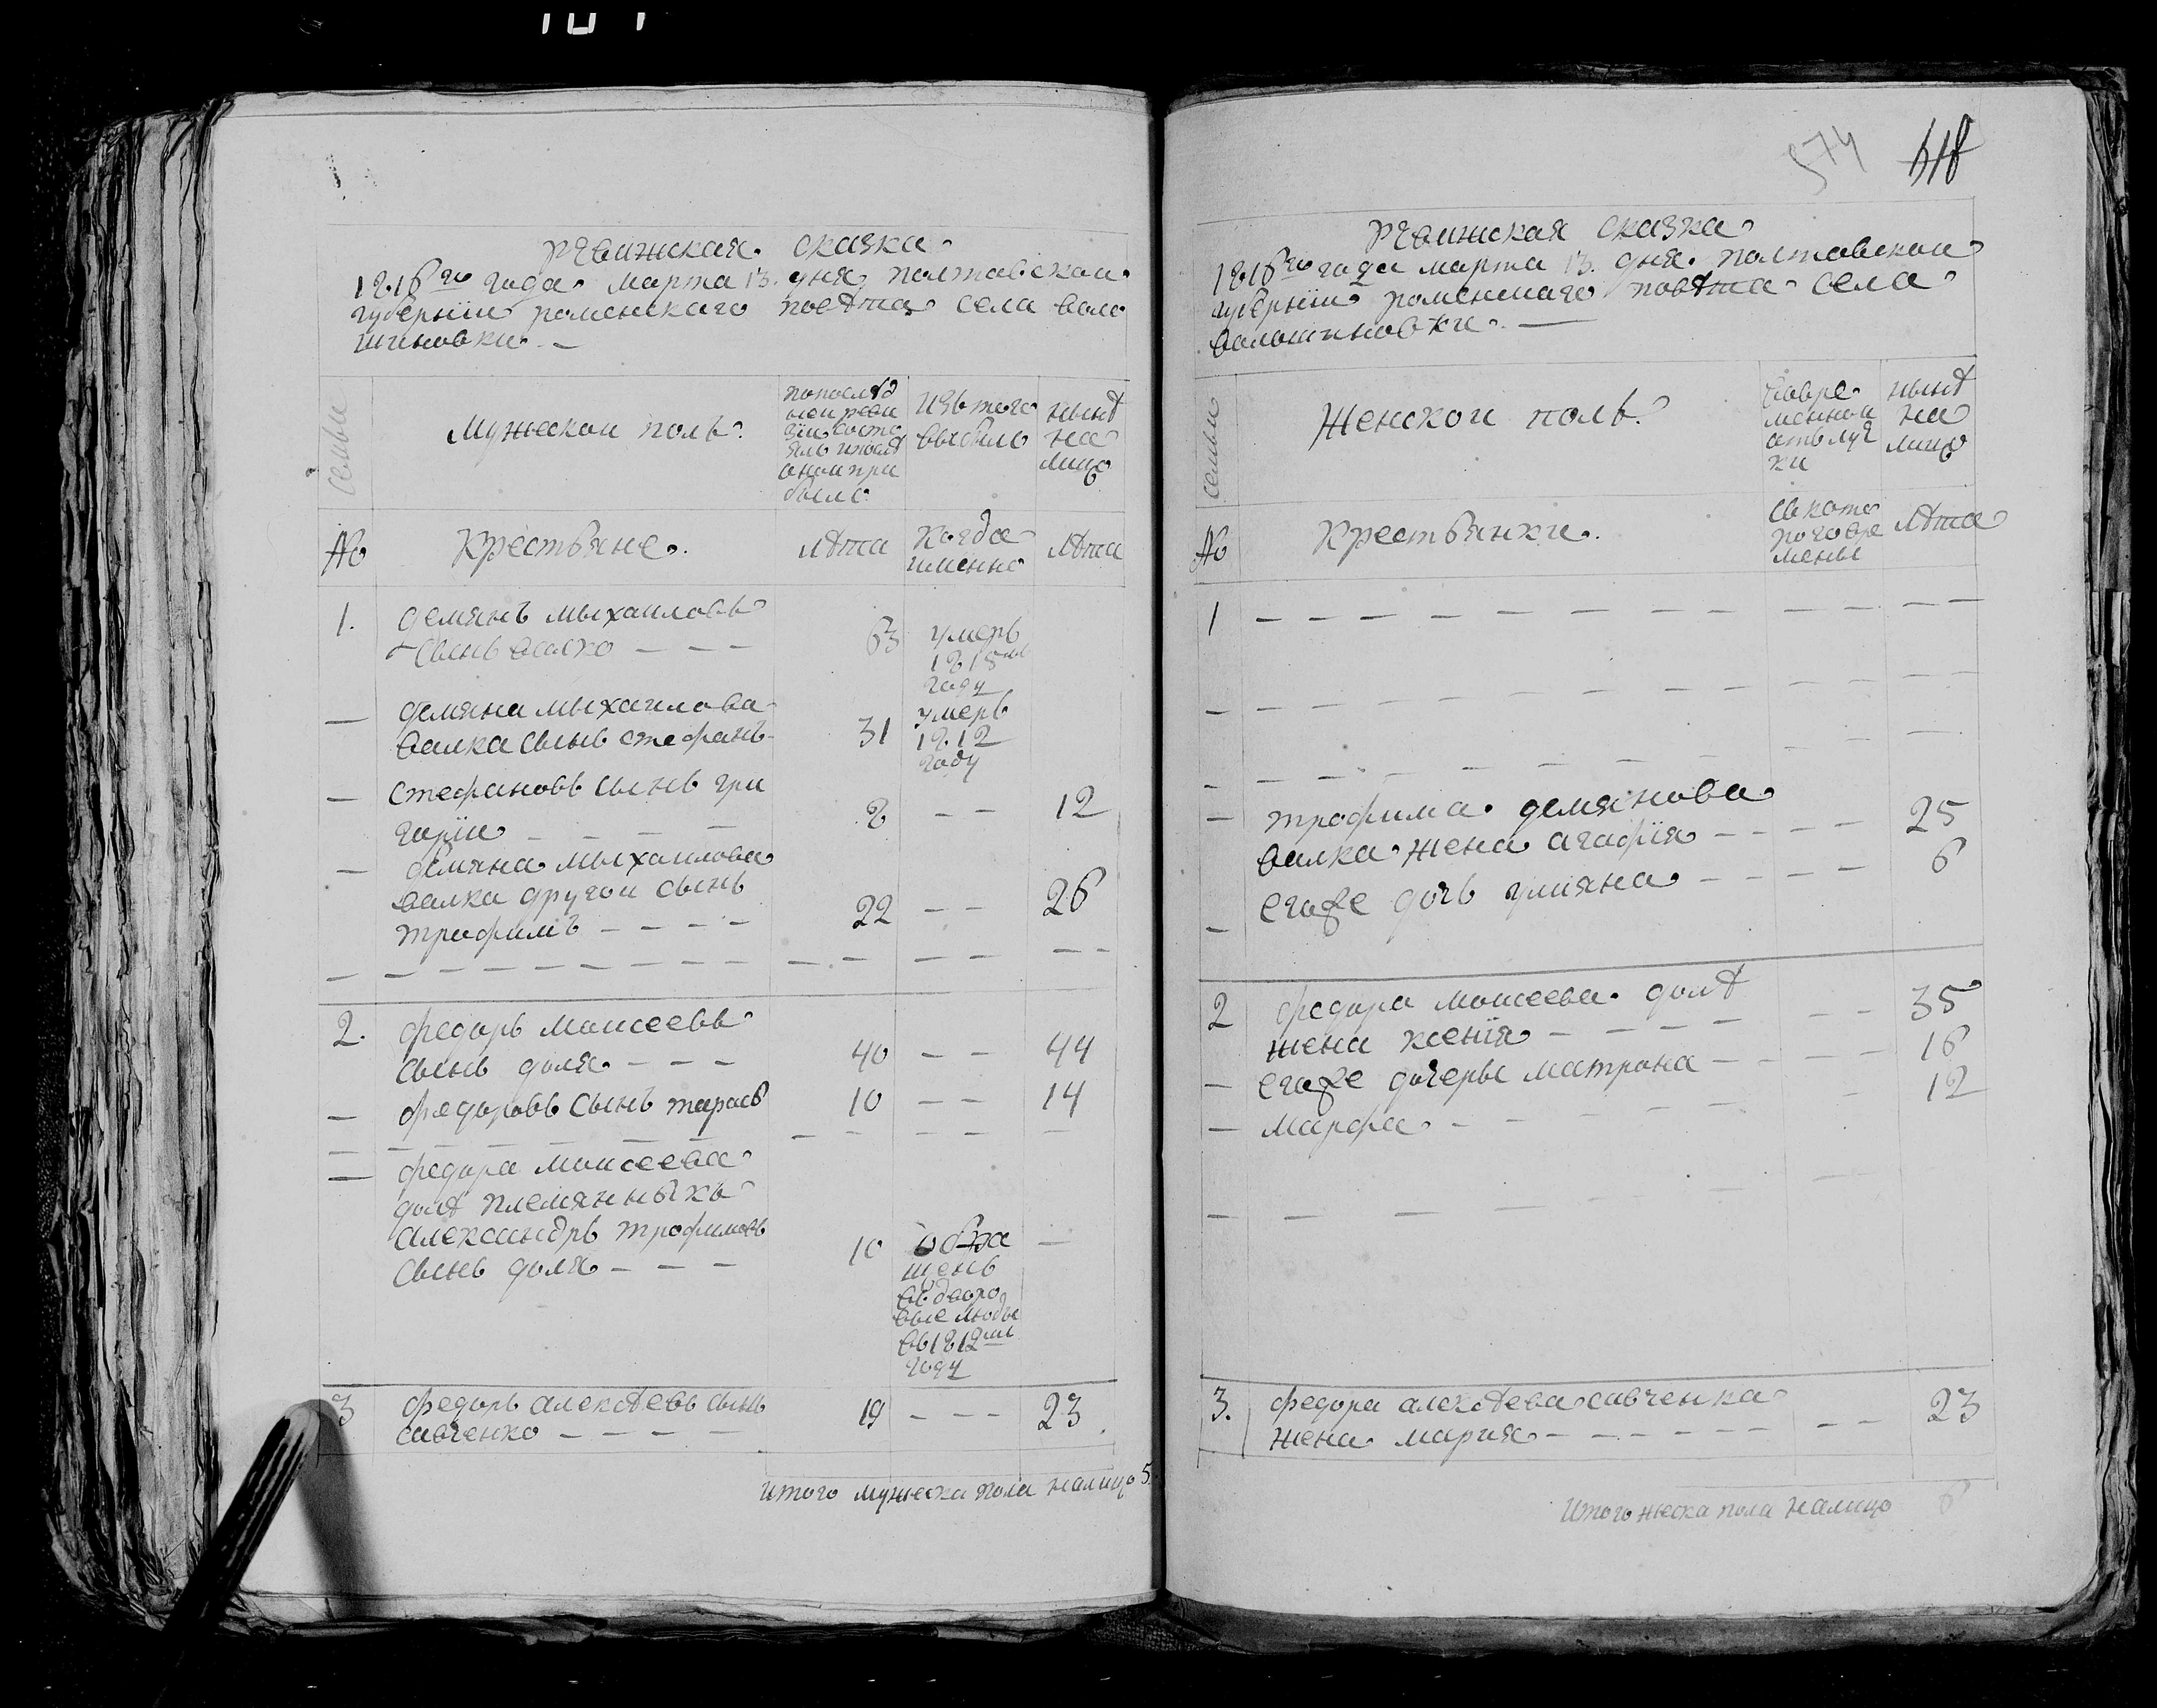 ревижская сказка
1816го года марта 13. дня, полтавскои
губерніи роменскаго повѣта села воло
шиновки. —
семьи
Мужескои полъ.
попослѣд
неи реви
зіи состо
ялъ ипослѣ
онои при
было
Изъ того
выбыло
нынѣ
на
лицо
№
Крестьяне.
лѣта
Когда
именно
лѣта
1. демянъ мыхаиловъ
сынъ валко — — — 63 умеръ
1815мъ
году
— демяна мыхаилова
валка сынъ стефанъ 31 умеръ
1812
году
— стефановъ сынъ гри
гории — — — — 8 — — 12
— демяна мыхаилова
валка другои сынъ
трофимъ — — — — 22 — — 26
2. федоръ моисеевъ
сынъ доля — — — 40 — — 44
— федоровъ сынъ тарасъ 10 — — 14
— федора моисеева
долѣ племянныкъ
александръ трофимовъ
сынъ доля — — — 10 обра —
щенъ
въ дворо
вые люды
въ 1812мъ
году
3 федоръ алексѣевъ сынъ
савченко — — — — 19 — — — 23
итого мужеска пола налицо 5.
574 618
Ревижская сказка
1816го года марта 13. дня. полтавскои
губерніи роменскаго повѣта села
волошиновки. —
семьи
Женскои полъ.
Вовре
меннои
отлуч
ки
нынѣ
на
лицо
№
Крестьянки.
съ кото
раго вре
мены
лѣта
1 — — — — — — — — —
— трофима демянова
валка жена агафія — — — — 25
его же дочь улияна — — — — 6
2 федора моисеева долѣ
жена ксенія — — — — — — 35
— его же дочеры матрона — — — — 16
— марфа — — — — 12
3. федора алексѣева савченка
жена мария — — — — — — — — 23
Итого жеска пола налицо 6